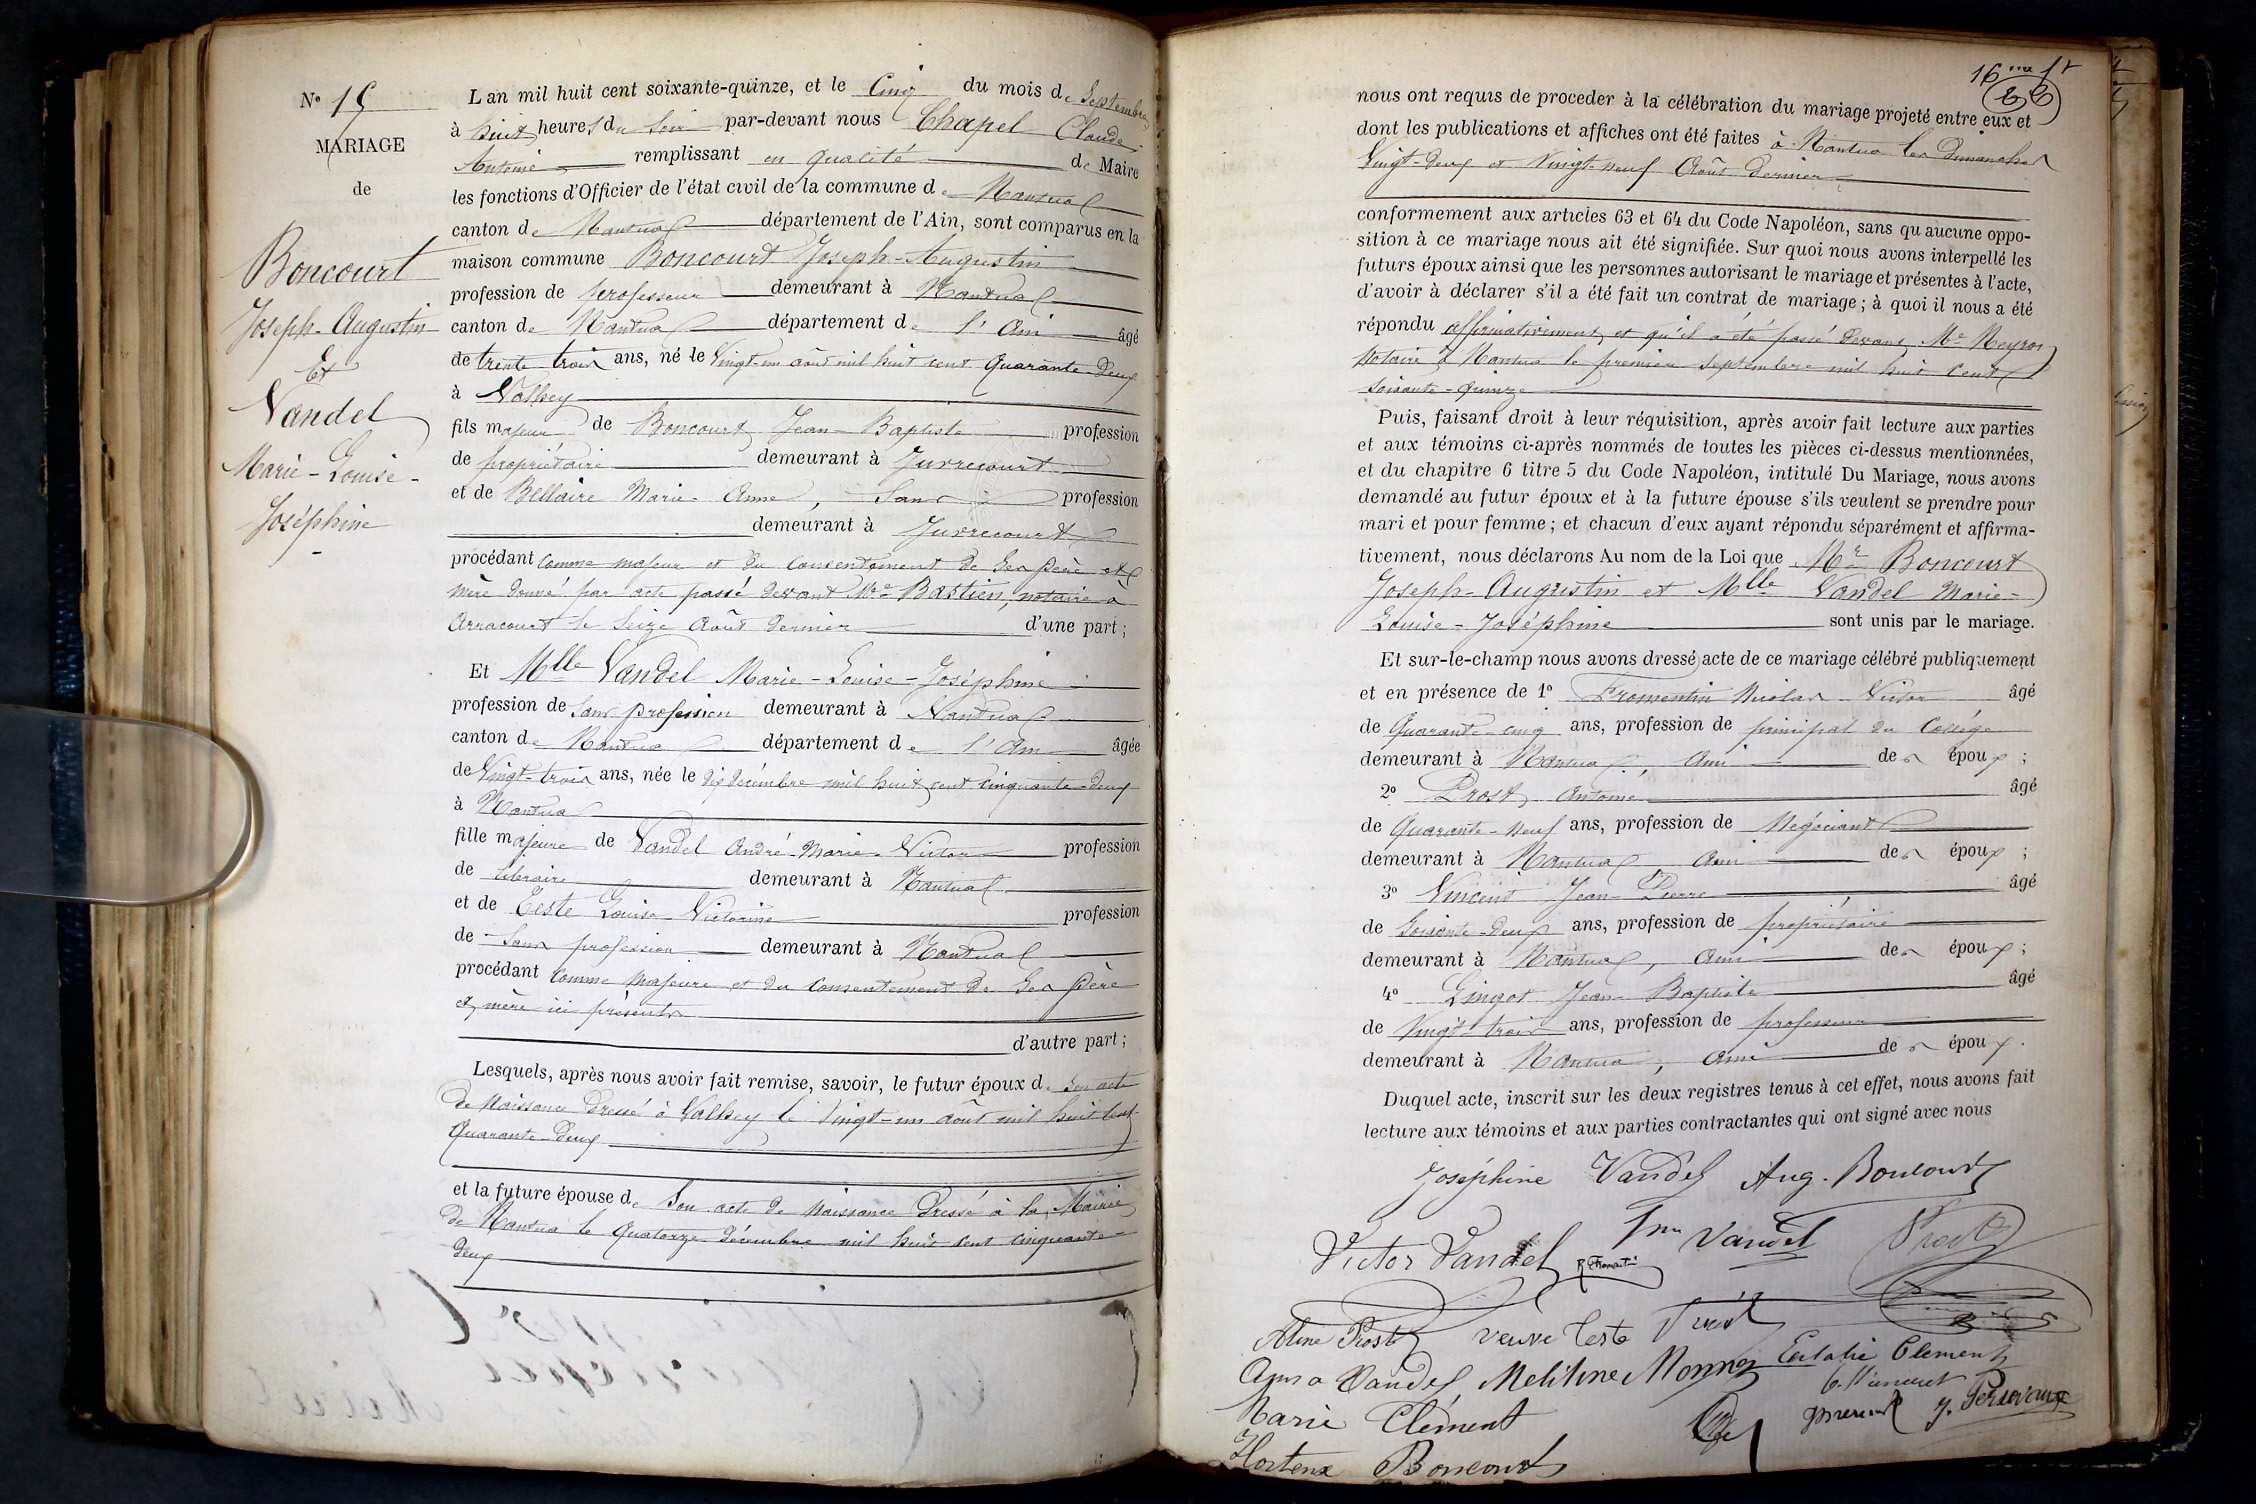 N° 15
MARIAGE
de
Boncourt
Joseph-Augustin
Et
Vandel
Marie-Louise-
Joséphine
L an mil huit cent soixante-quinze, et le Cinq du mois de Septembre
à huit heures du soir par-devant nous Chapel Claude
Antoine remplissant en qualité de Maire
les fonctions d'Officier de l'état civil de la commune de Nantua
canton de Nantua département de l'Ain, sont comparus en la
maison commune Boncourt Joseph-Augustin
profession de professeur demeurant à Nantua
canton de Nantua département de l'Ain âgé
de trente trois ans, né le Vingt-un août mil huit cent Quarante-Deux
à Valhey
fils majeur de Boncourt Jean-Baptiste profession
de propriétaire demeurant à Juvrecourt
et de Bellaire Marie-Anne, Sans profession
demeurant à Juvrecourt
procédant comme majeur et du consentement de Ses père et
mère donné par acte passé devant Me Bastien, notaire à
Arracourt le Seize Août dernier d'une part;
Et Mlle Vandel Marie-Louise-Joséphine
profession de Sans profession demeurant à Nantua
canton de Nantua département de l'Ain âgée
de Vingt-trois ans, née le dix décembre mil huit cent cinquante-deux
à Nantua
fille majeure de Vandel André-Marie-Victor profession
de libraire demeurant à Nantua
et de Teste Louise Victorine profession
de Sans profession demeurant à Nantua
procédant comme majeure et du consentement de Ses Père
et mère ici présents
d'autre part;
Lesquels, après nous avoir fait remise, savoir, le futur époux de son acte
de Naissance Dressé à Valhey le Vingt-un août mil huit cent
Quarante-Deux
et la future épouse de Son acte de Naissance Dressé à la Mairie
de Nantua le Quatorze décembre mil huit cent cinquante-
deux
16me
nous ont requis de proceder à la célébration du mariage projeté entre eux et
dont les publications et affiches ont été faites à Nantua les Dimanches
Vingt-Deux et Vingt-neuf Août Dernier
conformement aux articles 63 et 64 du Code Napoléon, sans qu aucune oppo-
sition à ce mariage nous ait été signifiée. Sur quoi nous avons interpellé les
futurs époux ainsi que les personnes autorisant le mariage et présentes à l'acte,
d'avoir à déclarer s'il a été fait un contrat de mariage; à quoi il nous a été
répondu affirmativement et qu'il a été passé Devant Me Neyron
Notaire à Nantua le premier Septembre mil huit cent
soixante-quinze
Puis, faisant droit à leur réquisition, après avoir fait lecture aux parties
et aux témoins ci-après nommés de toutes les pièces ci-dessus mentionnées,
et du chapitre 6 titre 5 du Code Napoléon, intitulé Du Mariage, nous avons
demandé au futur époux et à la future épouse s'ils veulent se prendre pour
mari et pour femme; et chacun d'eux ayant répondu séparément et affirma-
tivement, nous déclarons Au nom de la Loi que Mr Boncourt
Joseph-Augustin et Mlle Vandel Marie-
Louise-Joséphine sont unis par le mariage.
Et sur-le-champ nous avons dressé acte de ce mariage célébré publiquement
et en présence de 1° Fromentin Nicolas Victor âgé
de Quarante-cinq ans, profession de principal du Collége
demeurant à Nantua, Ain des époux;
2° Prost Antoine âgé
de Quarante-neuf ans, profession de Négociant
demeurant à Nantua Ain des époux;
3° Vincent Jean-Pierre âgé
de Soixante-Deux ans, profession de propriétaire
demeurant à Nantua, Ain des époux;
4° Lingot Jean-Baptiste âgé
de Vingt trois ans, profession de professeur
demeurant à Nantua, Ain des époux.
Duquel acte, inscrit sur les deux registres tenus à cet effet, nous avons fait
lecture aux témoins et aux parties contractantes qui ont signé avec nous
Joséphine Vandel Aug. Boncourt
Victor Vandel Vandel Prost
Aline Prost veuve Teste
Vandel Melitine Monnet Eulalie Clement
Marie Clément
Hortense Boncourt